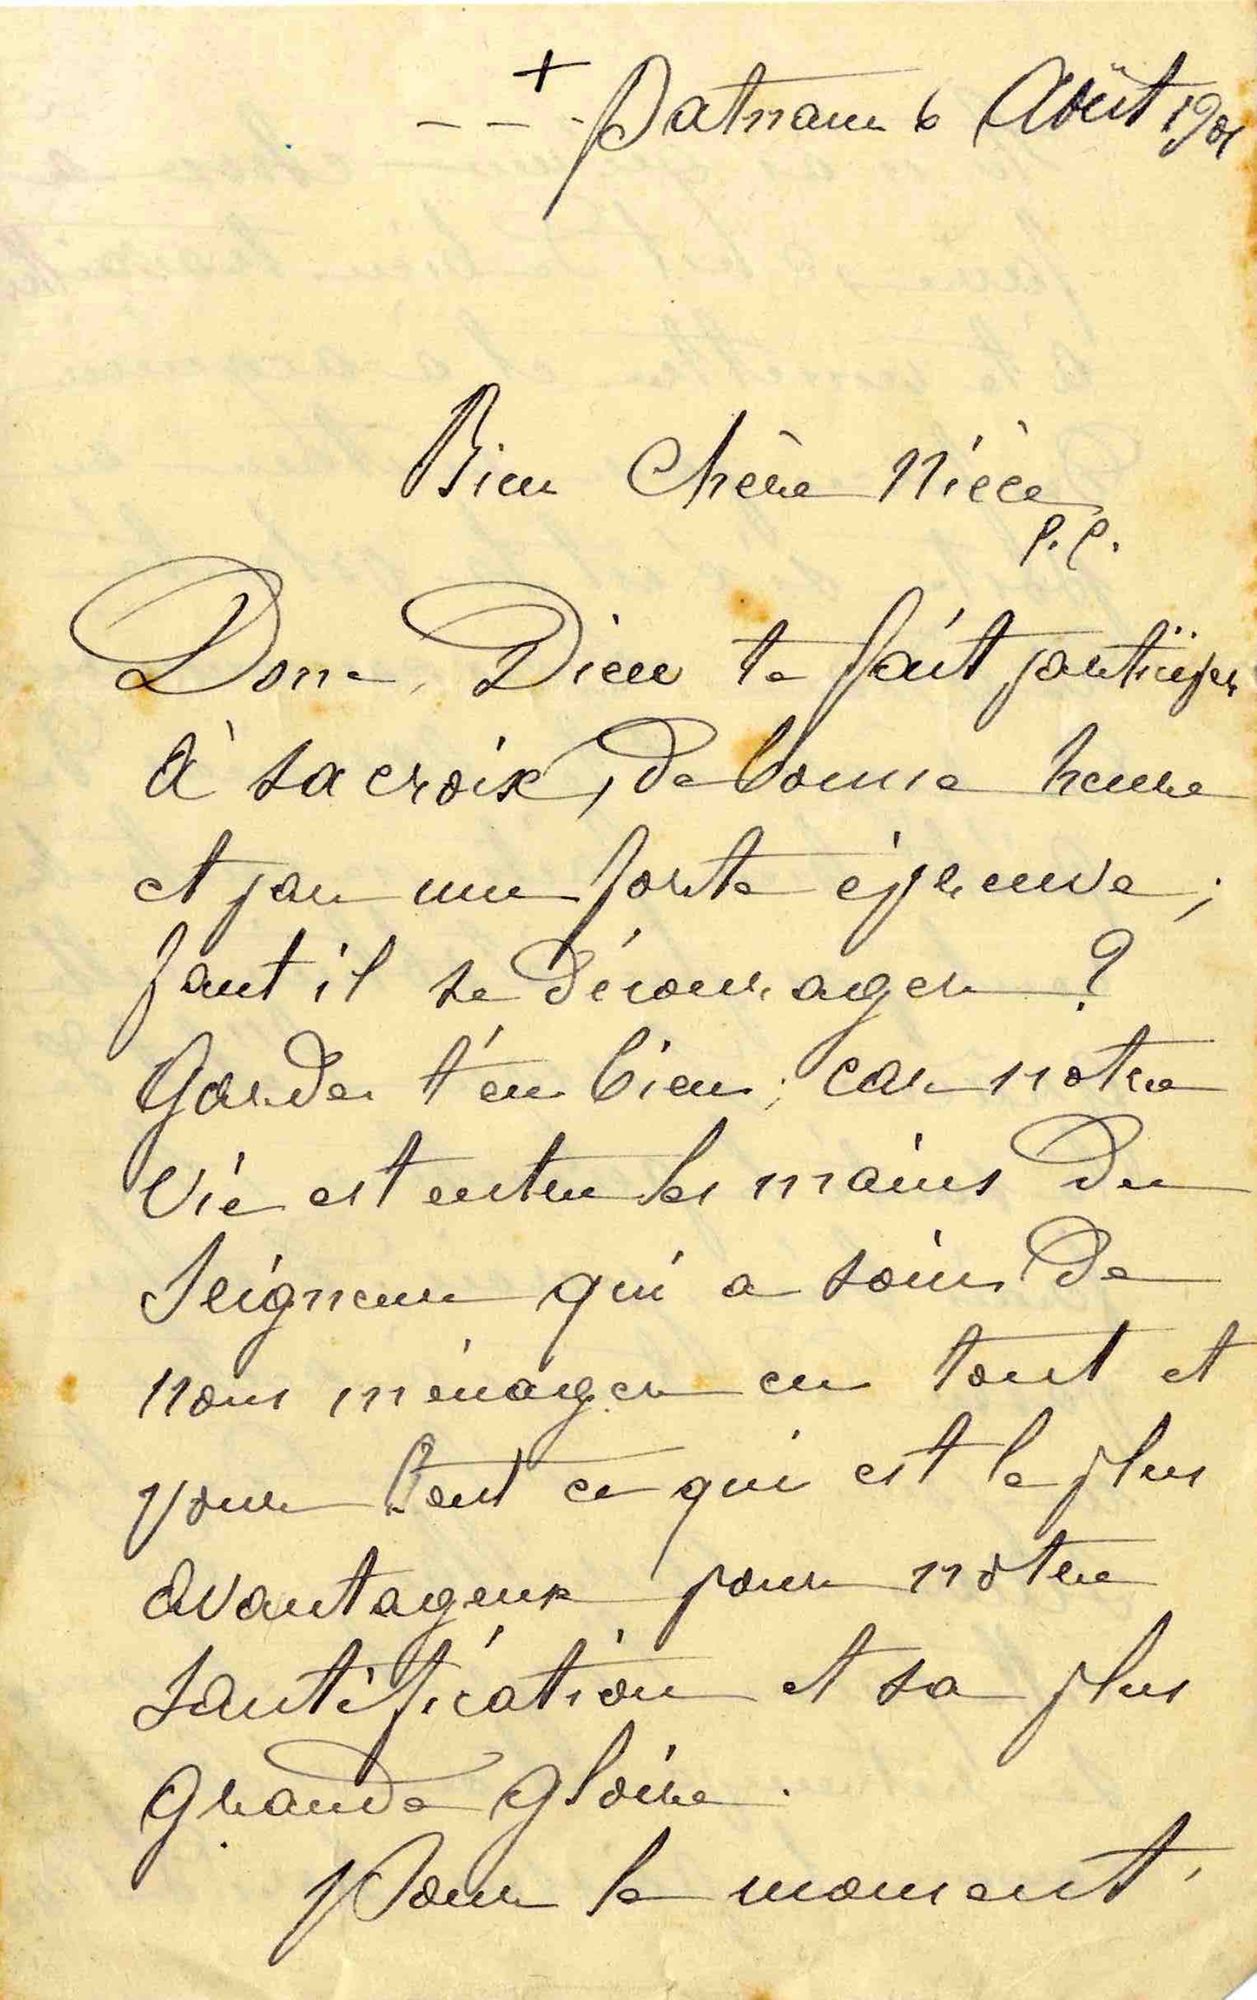 +
Patnam 6 Août 1901
Bien Chère Nièce
P.C.
Donc, Dieu te fait participer
à sa croix, de bonne heure
et par une forte épreuve ;
faut il se décourager ?
Garde t'en bien ; car notre
vie est entre les mains du
Seigneur qui a soin de
nous ménager en tout et
pour tout ce qui est le plus
avantageux pour notre
santification et sa plus
grande gloire.
Pour le moment,